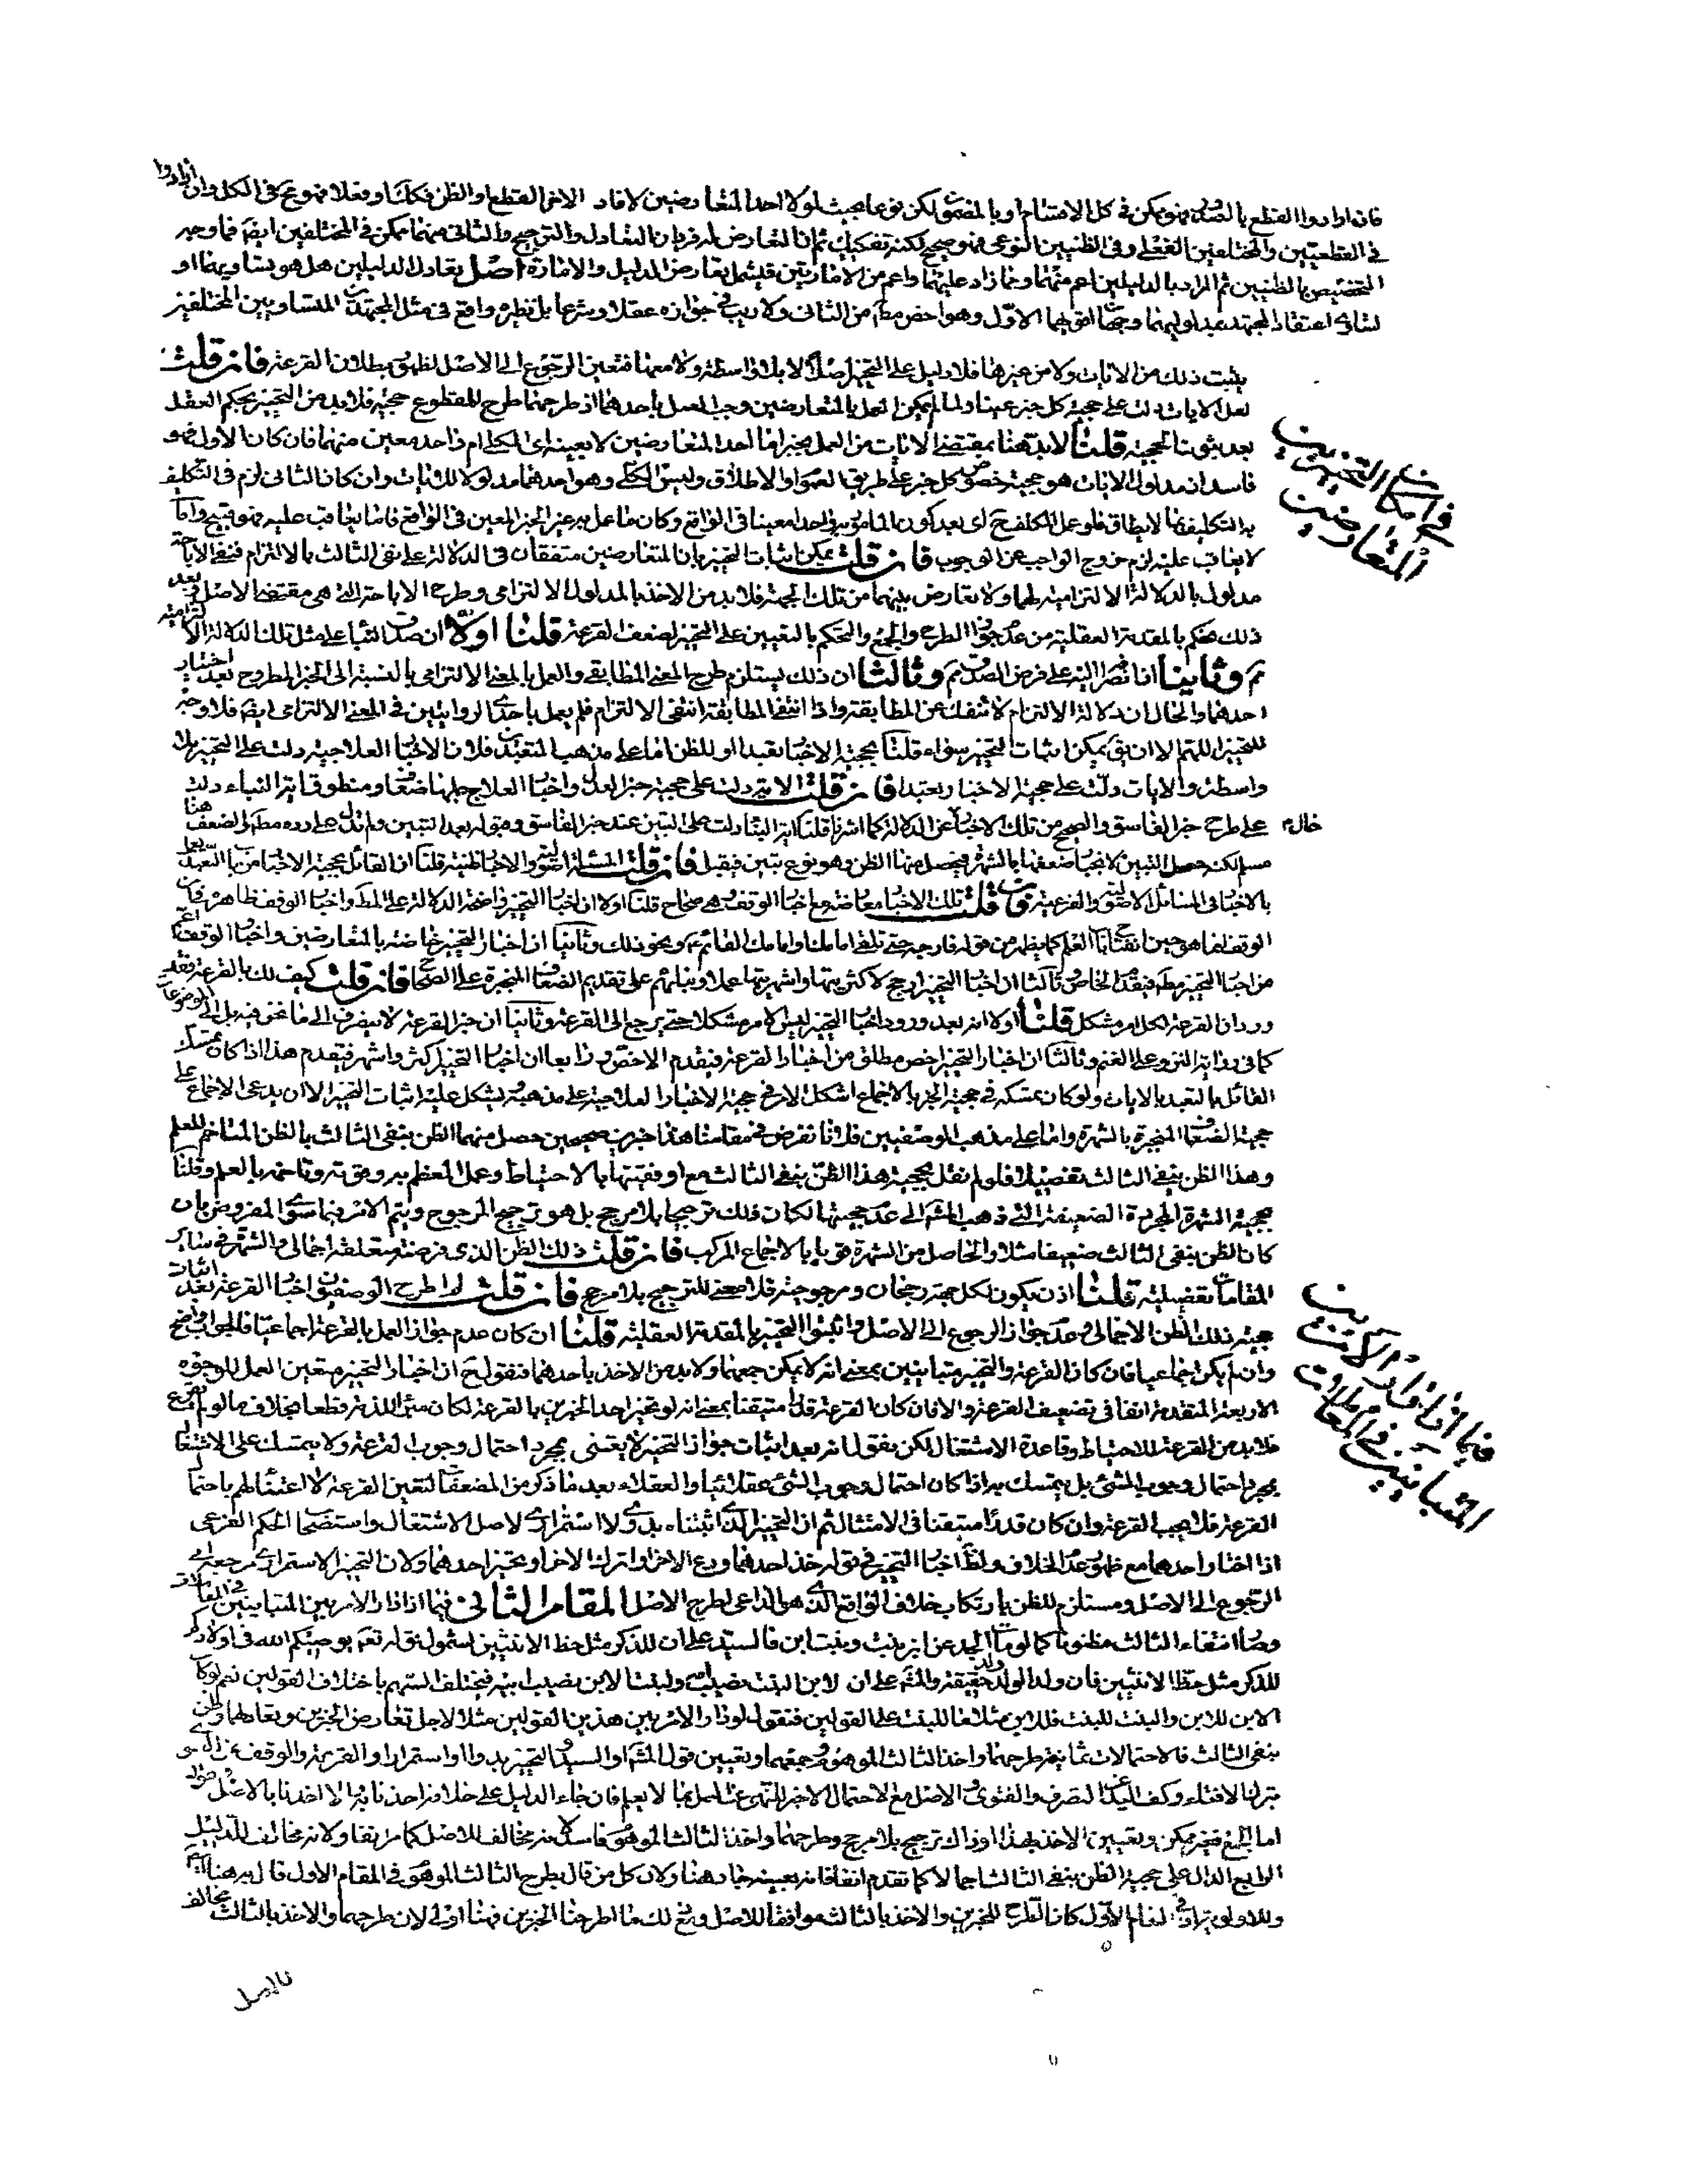 فان ارادوا القطع بالصدور فهو ممكن في كل الاقسام او بالمضمون لكن نوعا بحيث لولا احد المتعارضين لافاد الاخر القطع او الظن فكك او فعلا فممنوع في الكل وان ارادوا
في القطعيين والمختلفين الفعلى وفى الظنيين النوعى فهو صحيح لكنه تفكيك ثم ان التعارض له فردان التعادل والترجيح والثانى منهما ممكن في المختلفين ايضا فما وجه
التخصيص بالظنيين ثم المراد بالدليلين اعم منهما ومما زاد عليهما واعم من الامارتين فيشمل تعارض الدليل والامارة اصل تعادل الدليلين هل هو تساويهما او
تساوى اعتقاد المجتهد بمدلوليهما وجهان اقويهما الاول وهو اخص مط من الثانى ولا ريب في جوازه عقلا وشرعا بل نظيره واقع في مثل المجتهدين المتساويين المختلفين
يثبت ذلك من الايات ولا من غيرها فلا دليل على التخيير اصلا لا بلا واسطة ولا معها فتعين الرجوع الى الاصل لظهور بطلان القرعة فان قلت
لعل الايات دلت على حجية كل خبر عينا ولما لم يمكن العمل بالمتعارضين وجب العمل باحدهما اذ طرحهما طرح للمقطوع حجيته فلا بد من التخيير بحكم العقل
بعد ثبوت الحجية قلنا لا بد هنا بمقتضى الايات من العمل بخبر اما احد المتعارضين لا بعينه اى الكلى ام واحد معين منهما فان كان الاول فهو
فاسد اذ مدلول الايات هو حجية خصوص كل خبر على طريق العموم او الاطلاق وليس الكلى وهو احدهما مدلولا للايات وان كان الثانى لزم في التكليف
به التكليف بما لا يطاق فلو عمل المكلف ح اى بعد كون المامور به واحدا معينا في الواقع وكان ما عمل به غير الخبر المعين في الواقع فاما يعاقب عليه فهو قبيح واما
لا يعاقب عليه لزم خروج الواجب عن الوجوب فان قلت يمكن اثبات التخيير بان المتعارضين متفقان في الدلالة على نفى الثالث بالالتزام فنفى الاباحة
مدلول بالدلالة الالتزامية لهما ولا تعارض بينهما من تلك الجهة فلا بد من الاخذ بالمدلول الالتزامى وطرح الاباحة التى هى مقتضى الاصل وبعد
ذلك نحكم بالمقدمة العقلية من عدم جواز الطرح والجمع والتحكم بالتعيين على التخيير لضعف القرعة قلنا اولا ان صدق النبأ على مثل تلك الدلالة الالتزامية
مم وثانيا انا نمنع انصرافه اليه على فرض الصدق وثالثا ان ذلك يستلزم طرح المعنى المطابقى والعمل بالمعنى الالتزامى بالنسبة الى الخبر المطروح بعد اختيار
احدهما والحال ان دلالة الالتزام لا تنفك عن المطابقة واذا انتفى المطابقة انتفى الالتزام فلم يعمل باحدى الروايتين في المعنى الالتزامى ايضا فلا وجه
للتخيير اللهم الا ان يق يمكن اثبات التخيير سواء قلنا بحجية الاخبار تعبدا او للظن اما على مذهب التعبد فلان الاخبار العلاجية دلت على التخيير بلا
واسطة والايات دلت على حجية الاخبار تعبدا فان قلت الاية دلت على حجية خبر العدل واخبار العلاج جلها ضعاف ومنطوق اية النباء دلت
على طرح خبر الفاسق والصحيح من تلك الاخبار خال عن الدلالة كما اشرنا قلنا اية النبأ دلت على التبين عند خبر الفاسق وقبوله بعد التبين ولم تدل على رده مط والضعف هنا
مسلم لكن حصل التبين لانجبار ضعفها بالشهرة فيحصل منها الظن وهو نوع تبين فيقبل فان قلت المسئلة اصولية والاخبار ظنية قلنا ان القائل بحجية الاخبار من باب التعبد يعمل
بالاخبار في المسائل الاصولية والفرعية فان قلت تلك الاخبار معارضة مع اخبار التوقف وهى صحاح قلنا اولا ان اخبار التخيير واضحة الدلالة على المط واخبار الوقف ظاهرة فان
الوقف انما هو حين انفتاح باب العلم كما يظهر من قوله فارجه حتى تلقى امامك او امامك القائم ع ونحو ذلك وثانيا ان اخبار التخيير خاصة بالمتعارضين واخبار الوقف اعم
من اخبار التخيير مط فيقدم الخاص وثالثا ان اخبار التخيير ارجح لاكثريتها واشهريتها عملا وبنائهم على تقديم الضعاف المنجبرة على الصحاح فان قلت كيف لك بالقرعة فقد
ورد ان القرعة لكل امر مشكل قلنا اولا انه بعد ورود اخبار التخيير ليس الامر مشكلا حتى يرجع الى القرعة وثانيا ان خبر القرعة لا ينصرف الى ما نحن فيه بل الى الموضوعات
كما في رواية النزو على الغنم وثالثا ان اخبار التخيير اخص مطلق من اخبار القرعة فيقدم الاخص ورابعا ان اخبار التخيير اكثر واشهر فيقدم هذا اذا كان تمسك
القائل بالتعبد بالايات ولو كان تمسكه في حجية الخبر بالاجماع اشكل الامر في حجية الاخبار العلاجية على مذهبه فيشكل عليه اثبات التخيير الا ان يدعى الاجماع على
حجية الضعاف المنجبرة بالشهرة واما على مذهب الوصفيين فلانا نفرض في مقامنا هذا خبرين صحيحين حصل منهما الظن بنفى الثالث بالظن المتاخم للعلم
وهذا الظن بنفى الثالث تفصيلا فلو لم نقل بحجية هذا الظن بنفى الثالث مع اوفقيتها بالاحتياط وعمل المعظم به وقوته وتاخمه بالعلم وقلنا
بحجية الشهرة المجردة الضعيفة التى ذهب المش الى عدم حجيتها لكان ذلك ترجيحا بلا مرجح بل هو ترجيح المرجوح ويتم الامر فيما سوى المفروض بان
كان الظن بنفى الثالث ضعيفا مثلا والحاصل من الشهرة قويا بالاجماع المركب فان قلت ذلك الظن الذى فرضته متعلقه اجمالى والشهرة في سائر
المقامات تفصيلية قلنا اذن يكون لكل جهة رجحان ومرجوحية فلا معنى للترجيح بلا مرجح فان قلت لم طرح الوصفيون اخبار القرعة بعد اثبات
حجية ذلك الظن الاجمالى وعدم جواز الرجوع الى الاصل واثبتوا التخيير بالمقدمة العقلية قلنا ان كان عدم جواز العمل بالقرعة اجماعيا فالجواب واضح
وان لم يكن اجماعيا فان كان القرعة والتخيير متباينين بمعنى انه لا يمكن جمعهما ولا بد من الاخذ باحدهما فنقول ح ان اخبار التخيير متعين العمل للوجوه
الاربعة المتقدمة انفا في تضعيف القرعة والا فان كان القرعة قدرا متيقنا بمعنى انه لو تخير احد الخبرين بالقرعة لكان مبرئ للذمة قطعا بخلاف ما لو لم يقرع
فلا بد من القرعة للاحتياط وقاعدة الاشتغال لكن نقول انه بعد اثبات جواز التخيير لا يعتنى بمجرد احتمال وجوب القرعة ولا يتمسك على الاشتغال
بمجرد احتمال وجوب الشئ بل يتمسك به اذا كان احتمال وجوب الشئ عقلائيا والعقلاء بعد ما ذكر من المضعفات لتعين القرعة لا اعتناء لهم باحتمال
القرعة فلا يجب القرعة وان كان قدرا متيقنا في الامتثال ثم ان التخيير الذى اثبتناه بدوى لا استمرارى لاصل الاشتغال واستصحاب الحكم الفرعى
اذا اختار احدهما مع ظهور عدم الخلاف ولظ اخبار التخيير في قوله خذ احدهما ودع الاخر او اترك الاخر او تخير احدهما ولان التخيير الاستمرارى مرجعه الى
الرجوع الى الاصل ومستلزم للظن بارتكاب خلاف الواقع الذى هو الداعى لطرح الاصل المقام الثانى فيما اذا دار الامر بين المتباينين في المعاملات
وصار انتفاء الثالث مظنونا كما لو مات الجد عن ابن بنت وبنت ابن فالسيد على ان للذكر مثل حظ الانثيين لشمول قوله تعم يوصيكم الله في اولادكم
للذكر مثل حظ الانثيين فان ولد الولد ولد حقيقة والمش على ان لابن البنت نصيب امه ولبنت الابن نصيب ابيه فيختلف السهم باختلاف القولين نعم لو كان
الابن للابن والبنت للبنت فللابن مثلا ما للبنت على القولين فنقول لو دار الامر بين هذين القولين مثلا لاجل تعارض الخبرين وتعادلهما وظن
بنفى الثالث فالاحتمالات ثمانية طرحهما واخذ الثالث الموهوم وجمعهما وتعيين قول المش او السيد والتخيير بدوا او استمرارا والقرعة والوقف عن الفتوى
بترك الافتاء وكف اليد عن التصرف والفتوى الاصل مع الاحتمال الاخير للنهى عن العمل بما لا يعلم فان جاء الدليل على خلافه اخذنا به والا اخذنا بالاصل فنقول
اما الجمع فغير ممكن وتعيين الاخذ بهذا او ذاك ترجيح بلا مرجح وطرحهما واخذ الثالث الموهوم فاسد لانه مخالف للاصل كما مر انفا ولانه مخالف للدليل
الرابع الدال على حجية الظن بنفى الثالث اجمالا كما تقدم انفا فانه بعينه جار هنا ولان كل من قال بطرح الثالث الموهوم في المقام الاول قال به هنا ايضا
وللاولوية اذ في المقام الاول كان الطرح للخبرين والاخذ بالثالث موافقا للاصل ومع ذلك ما طرحنا الخبرين فهنا اولى لان طرحهما والاخذ بالثالث مخالف
للاصل
في امكان التخيير بين المتعارضين
فيما اذا دار الامر بين المتباينين في المعاملات